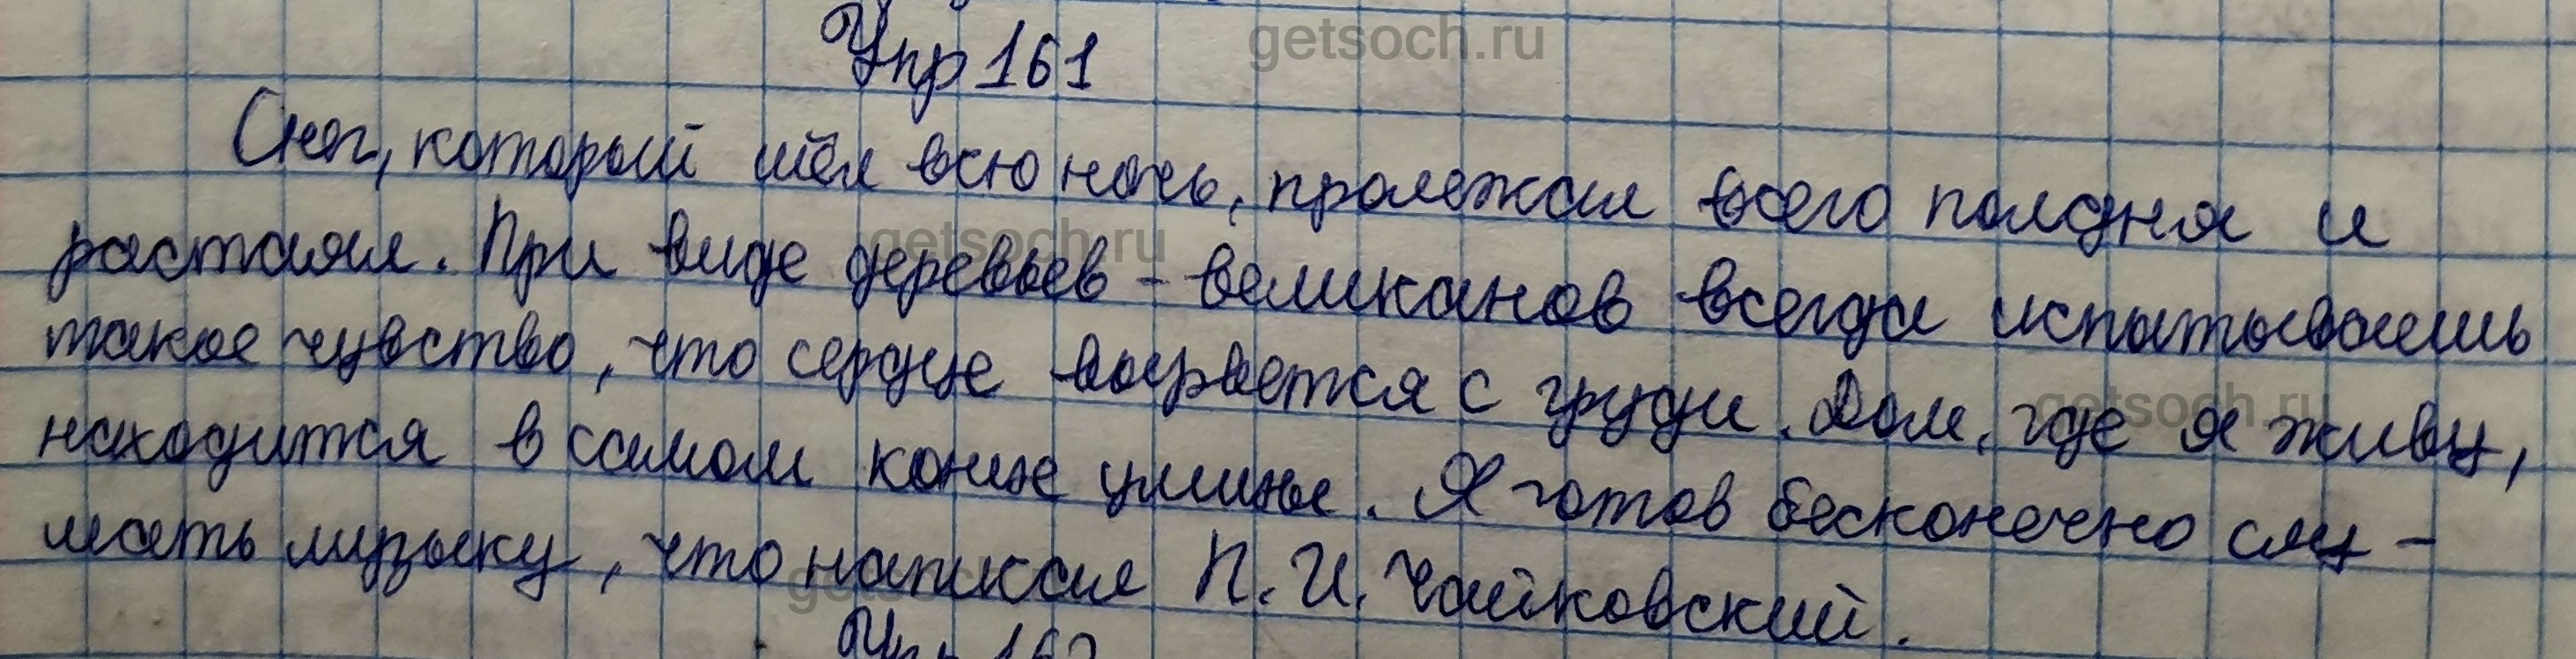 Упр 161
Снег, который шёл всю ночь, пролежал всего полдня и
растаял. При виде деревьев-великанов всегда испытываешь
такое чувство, что сердце вырвется с груди. Дом, где я живу,
находится в самом конце улицы. Я готов бесконечно слу-
шать музыку, что написал П. И. Чайковский.
Упр 162
getsoch.ru
getsoch.ru
getsoch.ru
getsoch.ru